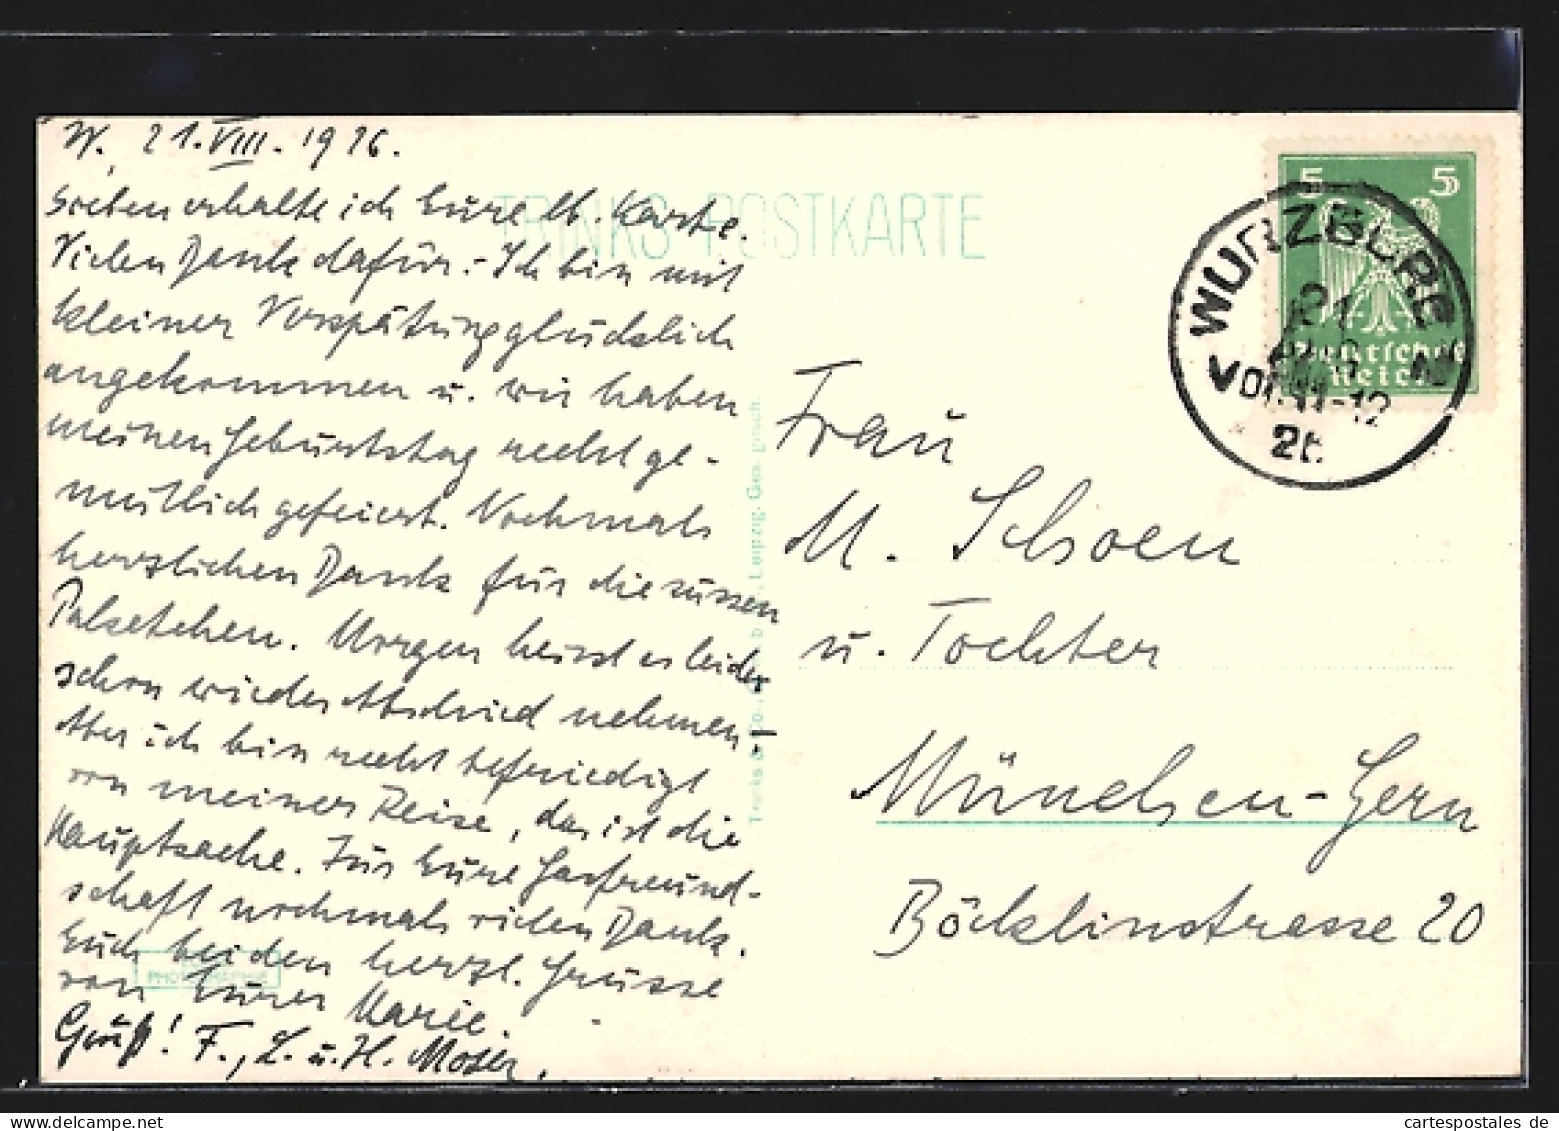 W. 21.VIII.1926.
Soeben erhalte ich Eure lb. Karte.
Vielen Dank dafür.- Ich bin mit
kleiner Verspätung glücklich
angekommen u. wir haben
meinen Geburtstag recht ge-
mütlich gefeiert. Nochmals
herzlichen Dank für die süssen
Paketchen. Morgen heisst es leider
schon wieder Abschied nehmen.-
Aber ich bin recht befriedigt
von meiner Reise, das ist die
Hauptsache. Für Eure Gastfreund-
schaft nochmals vielen Dank.
Euch beiden herzl. Grüsse
von Eurer Marie.
Gruß! F., L. u. H. Moser.
TRINKS POSTKARTE
PHOTOGRAPHIE
Trinks & Co., Leipzig. Ges. gesch.
5 5
Deutsches
Reich
WÜRZBURG 2
21
AUG
Vor. 11-12
26
Frau
M. Schoen
u. Tochter
München-Gern
Böcklinstrasse 20
www.delcampe.net
cartespostales de